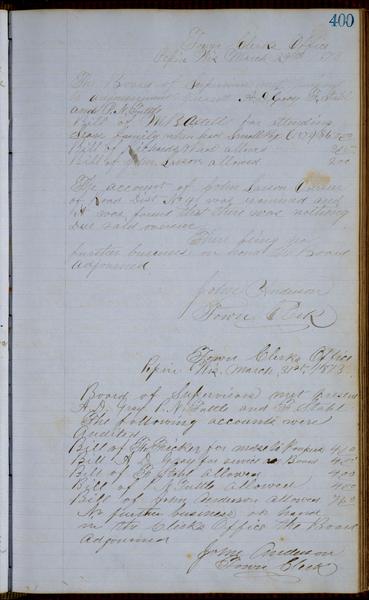 400
Town Clerks Office
Pepin Wis March 1873
The Board of Supervisors met
to adjournment present A. D. Gray F. Stahl
and P. N. Tuttle
Bill of for attending
family when had Small Pox
Bill of Richards Ward allowed
Bill of John Larson allowed 200
The account of John Larson Overseer
of Road Dist No was examined and
it was found that there was nothing
due said overseer
There being no
further business on hand the Board
adjourned
John Anderson
Town Clerk
Town Clerks Office
Pepin Wis, March, 31st, 1873
Board of Supervisors met present
A. D. Gray P. N. Tuttle and F. Stahl
The following accounts were
Audited
Bill of for
Bill of Gray for services Board 400
Bill of F. Stahl Allowed 400
Bill of P. N. Tuttle Allowed 400
Bill of John Anderson allowed
No further business on hand
in the Clerks Office the Board
adjourned
John Anderson
Town Clerk